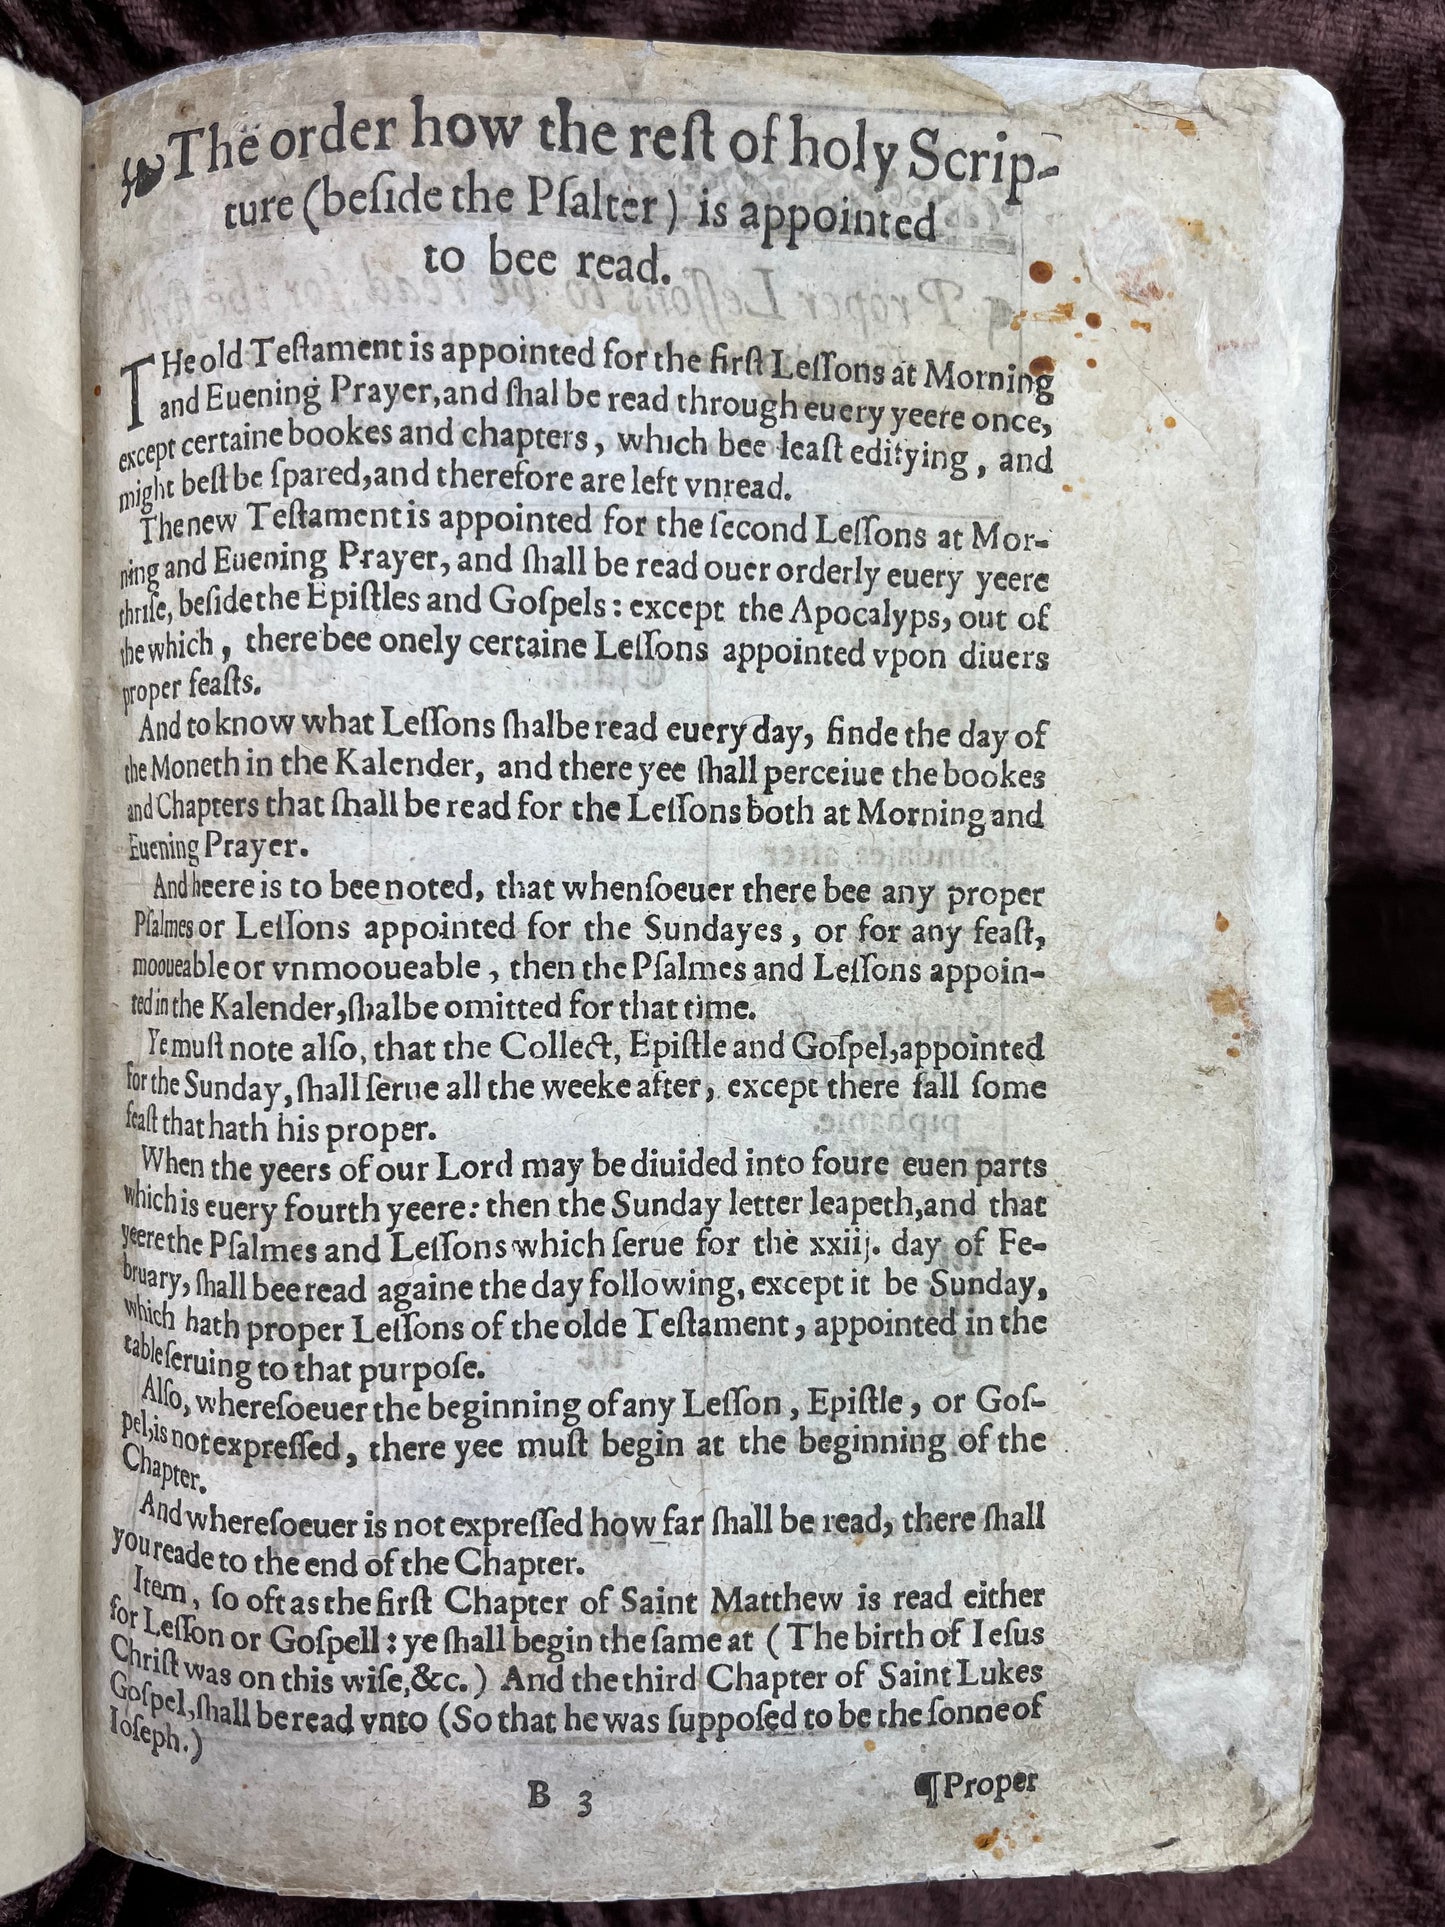 The order how the reſt of holy Scrip-
ture (beſide the Pſalter) is appointed
to bee read.
THe old Teſtament is appointed for the firſt Leſſons at Morning
and Euening Prayer, and ſhal be read through euery yeere once,
except certaine bookes and chapters, which bee leaſt edifying, and
might beſt be ſpared, and therefore are left vnread.
The new Teſtament is appointed for the ſecond Leſſons at Mor-
ning and Euening Prayer, and ſhall be read ouer orderly euery yeere
thriſe, beſide the Epiſtles and Goſpels: except the Apocalyps, out of
the which, there bee onely certaine Leſſons appointed vpon diuers
proper feaſts.
And to know what Leſſons ſhalbe read euery day, finde the day of
the Moneth in the Kalender, and there yee ſhall perceiue the bookes
and Chapters that ſhall be read for the Leſſons both at Morning and
Euening Prayer.
And heere is to bee noted, that whenſoeuer there bee any proper
Pſalmes or Leſſons appointed for the Sundayes, or for any feaſt,
mooueable or vnmooueable, then the Pſalmes and Leſſons appoin-
ted in the Kalender, ſhalbe omitted for that time.
Ye muſt note alſo, that the Collect, Epiſtle and Goſpel, appointed
for the Sunday, ſhall ſerue all the weeke after, except there fall ſome
feaſt that hath his proper.
When the yeers of our Lord may be diuided into foure euen parts
which is euery fourth yeere: then the Sunday letter leapeth, and that
yeere the Pſalmes and Leſſons which ſerue for the xxiij. day of Fe-
bruary, ſhall bee read againe the day following, except it be Sunday,
which hath proper Leſſons of the olde Teſtament, appointed in the
table ſeruing to that purpoſe.
Alſo, whereſoeuer the beginning of any Leſſon, Epiſtle, or Goſ-
pel, is not expreſſed, there yee muſt begin at the beginning of the
Chapter.
And whereſoeuer is not expreſſed how far ſhall be read, there ſhall
you reade to the end of the Chapter.
Item, ſo oft as the firſt Chapter of Saint Matthew is read either
for Leſſon or Goſpell: ye ſhall begin the ſame at (The birth of Ieſus
Chriſt was on this wiſe, &c.) And the third Chapter of Saint Lukes
Goſpel, ſhall be read vnto (So that he was ſuppoſed to be the ſonne of
Ioſeph.)
B 3 ¶Proper